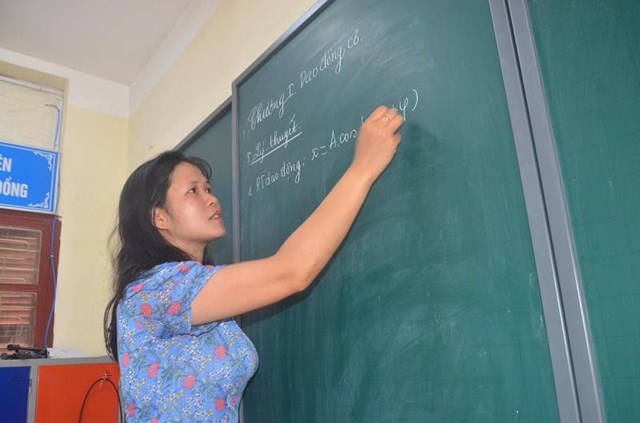 Chương I. Dao động cơ.
I. Lý thuyết:
1. PT dao động: x = A.cos( φ)
ÊN
ĐỒNG